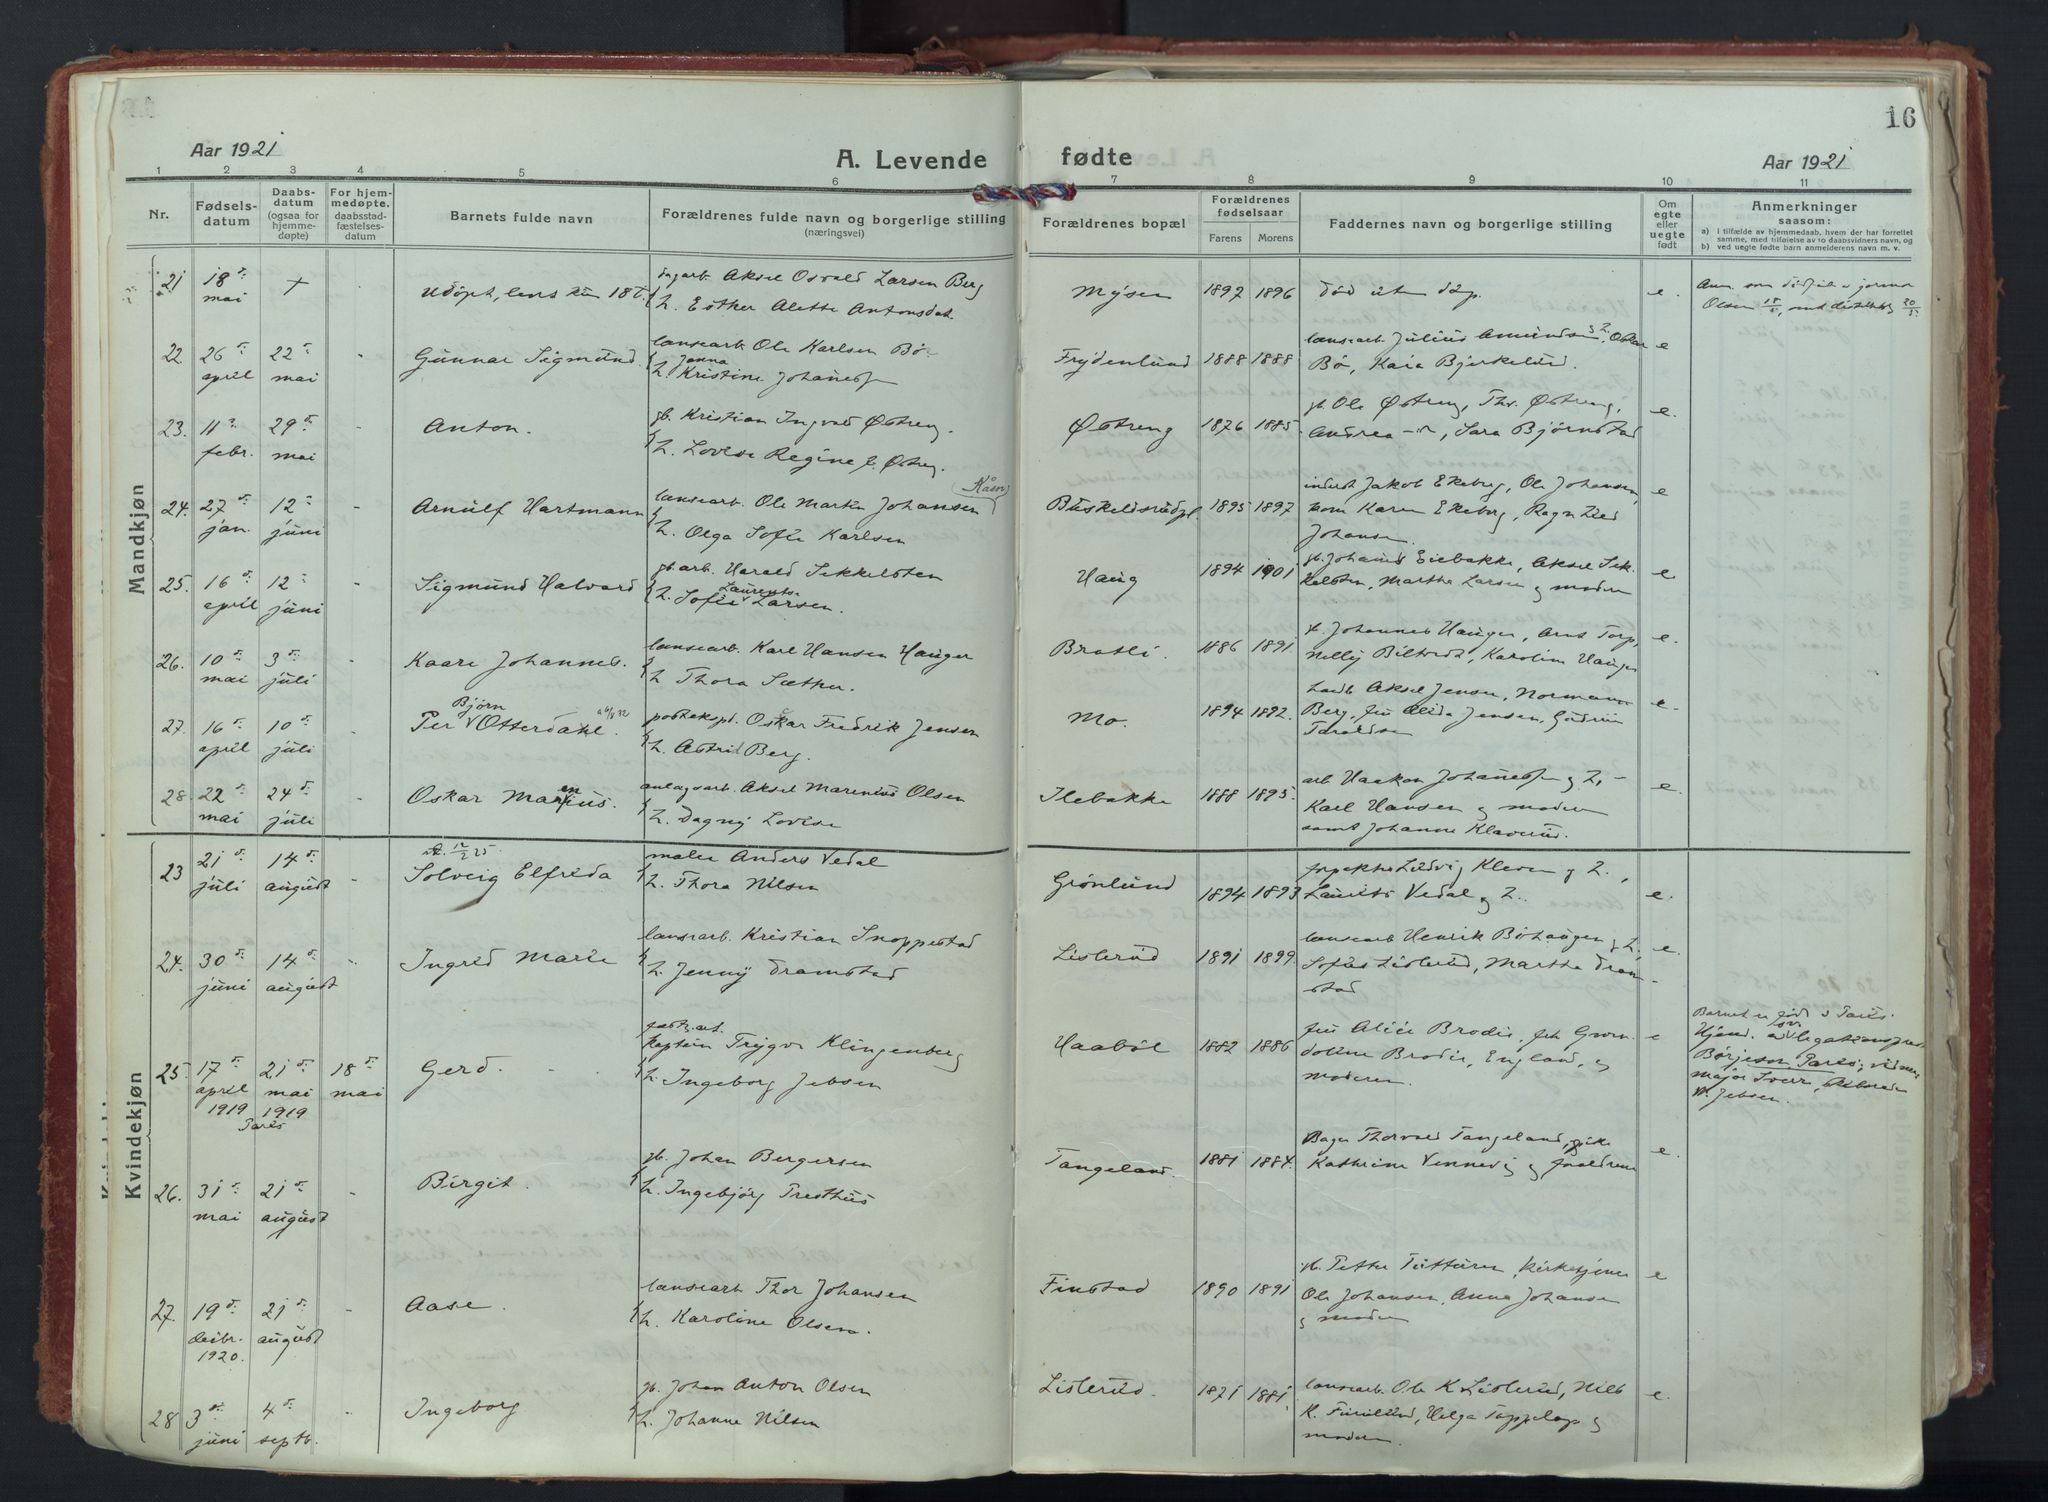 16
Aar 1921
A. Levende
fødte
Aar 1921
1 2 3 4 5 6 7 8 9 10 11
Nr.
Fødsels-
datum
Daabs-
datum
(ogsaa for
hjemme-
døpte)
For hjem-
medøpte.
daabsstad-
fæstelses-
datum
Barnets fulde navn
Forældrenes fulde navn og borgerlige stilling
(næringsvei)
Forældrenes bopæl
Forældrenes
fødselsaar
Farens Morens
Faddernes navn og borgerlige stilling
Om
egte
eller
uegte
født
Anmerkninger
saasom:
a) i tilfælde av hjemmedaab, hvem der har forrettet
samme, med tilføielse av to daabsvidners navn, og
b) ved uegte fødte barn anmelderens navn m. v.
Mandkjøn
21 18 mai +
dagarb. Aksel Osvald Larsen Berg
H. Esther Alette Antonsdat.
Mysen 1897 1896 død uten dåp. e.
22 26 april 22 mai - Gunnar Sigmund
landarb. Ole Karlsen Bø
Janna
H. Kristine Johaness
Frydenlund 1888 1888
landarb. Julius Amundsen, Oskar
Bø, Kaia Bjerkelund. e
23. 11 febr. 29 mai - Anton.
gb. Kristian Ingvald Østreng
H. Lovise Regine Østreng.
Østreng 1876 1885
gb. Ole Østreng, Thv. Østreng,
Andrea, Sara Bjørnstad e.
24. 27 jan. 12 juni - Arnulf Hartmann
(Kåsen)
landarb. Ole Martin Johansen
H. Olga Sofie Karlsen
1895 1897
inderst Jakob Ekeberg, Ole Johansen,
kone Karen Ekeberg, Ragnhild
Johansen e
25. 16 april 12 juni - Sigmund Halvard
gb. arb. Harald Sekkelsten
H. Sofie Larsen.
Haug 1894 1901
Eiebakke, Aksel Sek-
kelsten, Martha Larsen og moderen e.
26. 10 mai 3 juli - Kaare Johannes.
landarb. Karl Hansen Hauger
H. Thora Sæther.
Bratli. 1886 1891
Johannes Hauger, Arnt Torp,
Nelly, Karoline Hauger e.
27. 16 april 10 juli -
Bjørn
Per Otterdahl.
posteksp. Oskar Fredrik Jensen
H. Astrid Berg.
Mo. 1894 1892.
Aksel Jensen, Normann
Berg, fru Alida Jensen, Gudrun
Taraldsen e.
28. 22 mai 24 juli - Oskar Marenius.
anlægsarb. Aksel Marenius Olsen
H. Dagny Lovise
Ilebakke 1888 1895.
arb. Haakon og H.
Karl Hansen og moderen
samt Johanne Klaverud. e.
Kvindekjøn
23 21 juli 14 august - Solveig Elfrida
maler Anders Vedal
H. Thora Nilsen
Grønlund 1894 1893
Ludvig Kleven og H.,
Laurits Vedal og H. e.
24. 30 juni 14 august - Ingrid Marie
landarb. Kristian Snoppestad
H. Jenny Dramstad
Listerud 1891 1899.
landarb Henrik Bøhaugen og H.
Sofus Listerud, Martha Dram-
stad e.
25. 17 april 1919 21 mai 1919 Paris 18 mai Gerd.
kaptein Trygve Klingenberg
H. Ingeborg Jebsen
Haabøl 1882 1886
fru Alice Brodie, frk Gwen-
doline Brodie, England, og
moderen. e
Barnet er født i Paris.
Hjemd. av legationsprest
Børjeson Paris; vidner
major, Deborah
W. Jebsen.
26. 31 mai 21 august - Birgit.
gb. Johan Bergersen
H. Ingebjørg Presthus
Tangeland. 1881 1884.
Bager Thorvald Tangeland, pike
Kathrine Vennevig og forældrene e.
27. 19 desbr. 1920. 21 august - Aase.
landarb. Thor Johansen
H. Karoline Olsen.
Finstad 1890 1891
gb. Petter, kirketjener
Ole Johansen, Anna Johansen
og moderen e
28 3 juni 4 septb. - Ingeborg
gb. Johan Anton Olsen
H. Johanne Nilsen
Listerud. 1871 1881
landarb. Ole K Listerud, Nils
K. Furulund, Helga Toppelop og
moderen. e.